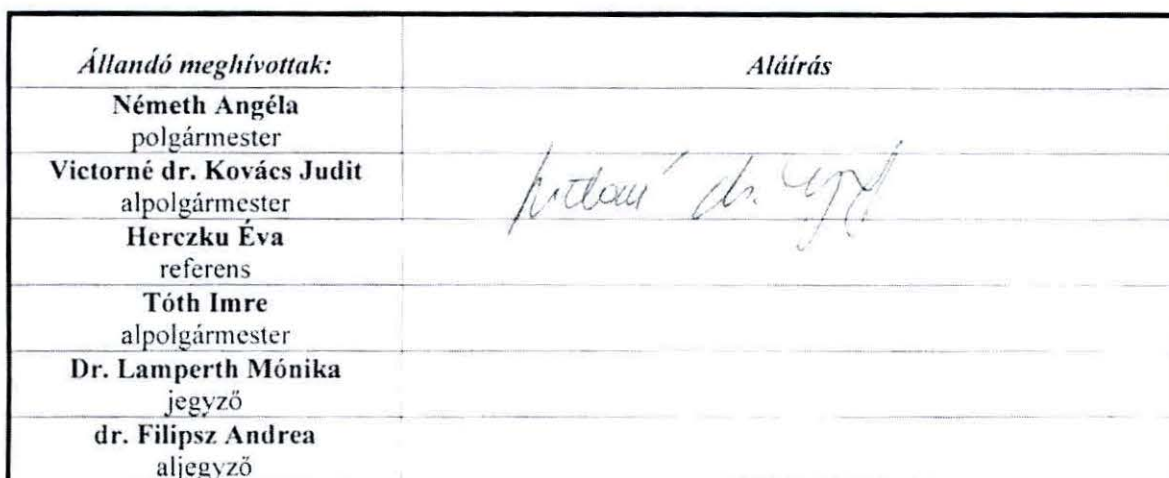 Állandó meghívottak: Aláírás
Németh Angéla
polgármester
Victorné dr. Kovács Judit
alpolgármester
dr.
Herczku Éva
referens
Tóth Imre
alpolgármester
Dr. Lamperth Mónika
jegyző
dr. Filipsz Andrea
aljegyző